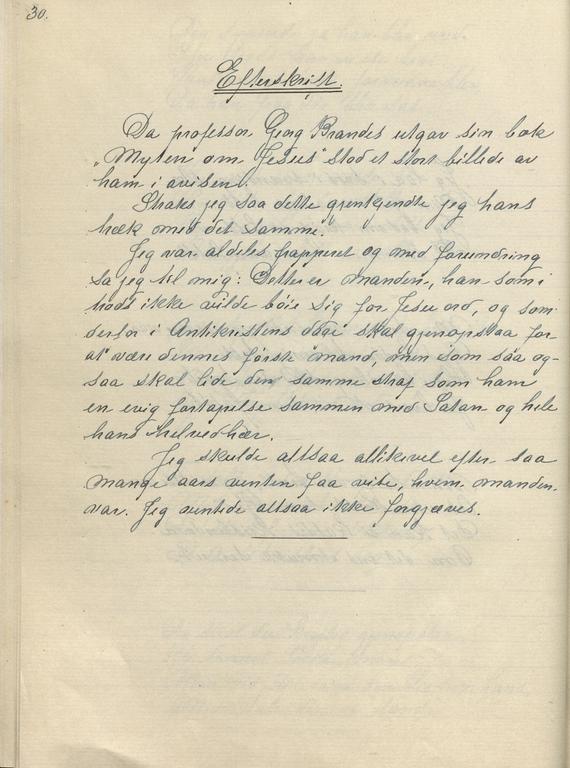 30.
Efterskrift.
Da professor Georg Brandes utgav sin bok
„Myten om Jesus" stod et stort billede av
ham i avisen.
Straks jeg saa dette gjenkjendte jeg hans
træk med det samme.
Jeg var aldeles frapperet og med forundring
sa jeg til mig: Dette er manden, han som i
trods ikke vilde böie sig for Jesu ord, og som
derfor i Antikristens dage skal gjenopstaa for
at være dennes förste mand, men som saa og-
saa skal lide den samme straf som ham
en evig fortapelse sammen med Satan og hele
hans helvedhær.
Jeg skulde altsaa allikevel efter saa
mange aars venten faa vite, hvem manden
var. Jeg ventede altsaa ikke forgjæves.